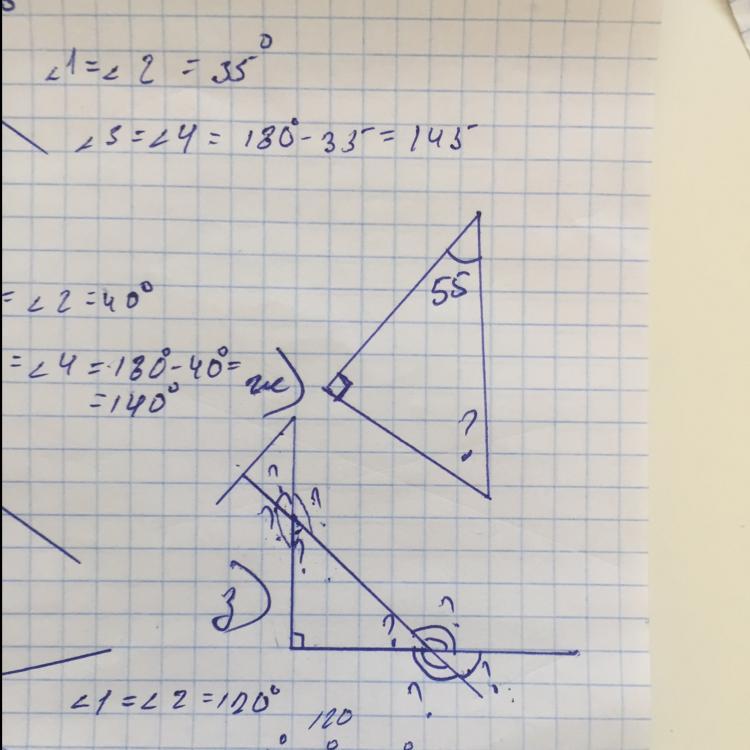 ∠1=∠2 = 35°
∠3=∠4= 180°-35=145
55
= ∠2=40°
=∠4=180°-40°=
=140°
ж)
?
?
?
?
?
з)
?
?
?
?
∠1=∠2=120°
120